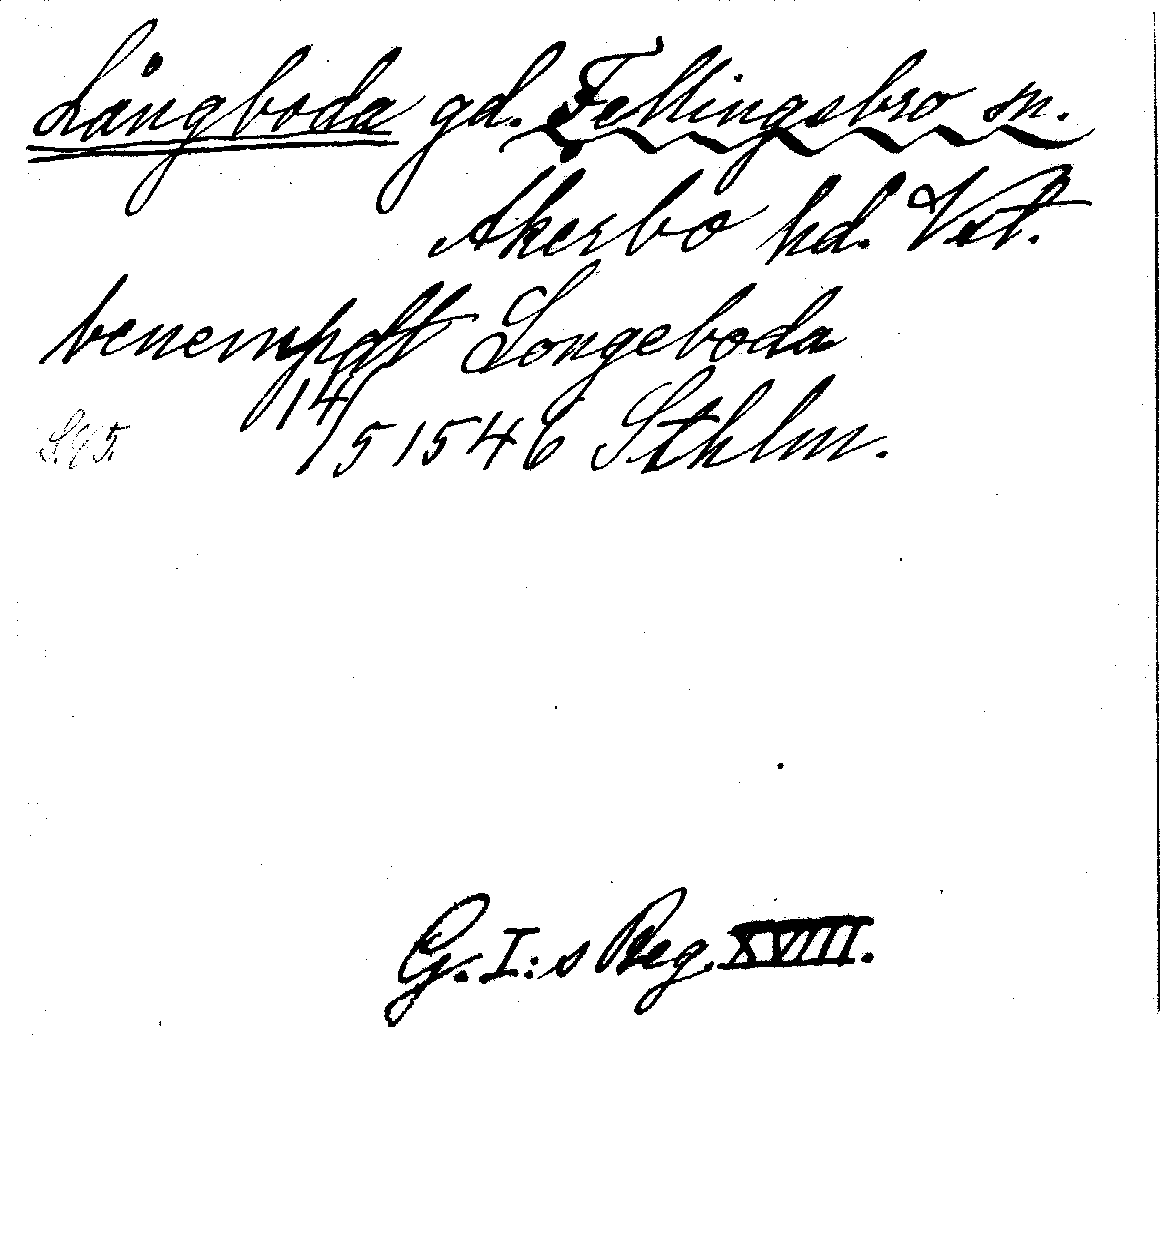 Långboda gd. Fellingsbro sn.
Åkerbo hd. Vstt.
benempdt Longeboda
S. 95. 14/5 1546 Sthlm.
G. I:s Reg. XVIII.